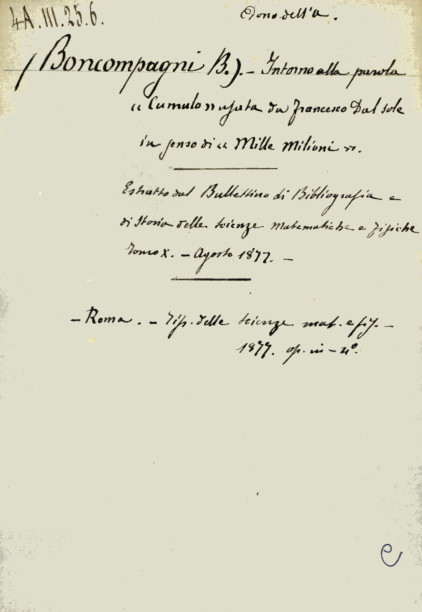 4A.III.25.6.
Dono dell'a.
(Boncompagni B.). – Intorno alla parola
« Cumulo » usata da Francesco Dal Sole
in senso di « Mille Milioni ».
Estratto dal Bullettino di Bibliografia e
di Storia delle scienze matematiche e fisiche
Tomo X. – Agosto 1877. –
– Roma. – Tip. delle scienze mat. e fis. –
1877. op. in – 4°.